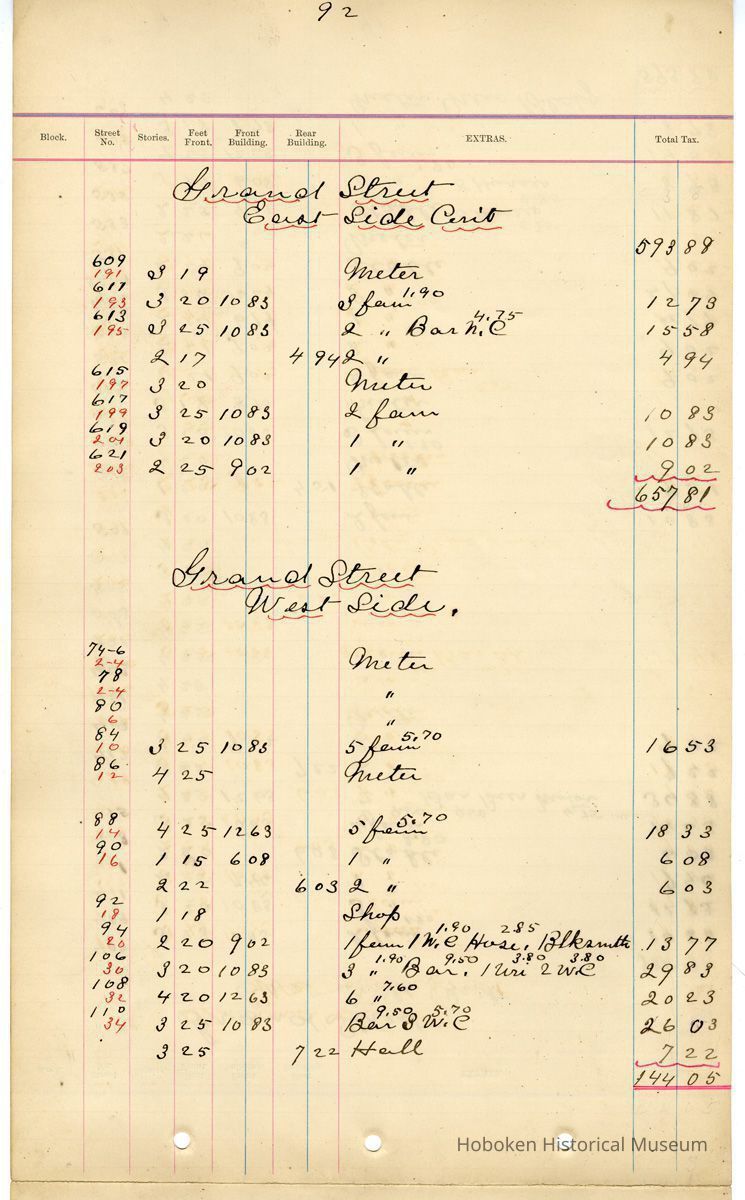 92
Block. Street No. Stories. Feet Front. Front Building. Rear Building. EXTRAS. Total Tax.
Grand Street
East Side Con't
593 88
609
191 3 19 Meter
611
193 3 20 10 83 3 fam 1.90 12 73
613
195 3 25 10 83 2 " Bar W.C 4.75 15 58
2 17 4 94 2 " 4 94
615
197 3 20 Meter
617
199 3 25 10 83 2 fam 10 83
619
201 3 20 10 83 1 " 10 83
621
203 2 25 9 02 1 " 9 02
657 81
Grand Street
West Side.
74-6
2-4 Meter
78
2-4 "
80
6 "
84
10 3 25 10 83 5 fam 5.70 16 53
86
12 4 25 Meter
88
14 4 25 12 63 5 fam 5.70 18 33
90
16 1 15 6 08 1 " 6 08
2 22 6 03 2 " 6 03
92
18 1 18 Shop
94
20 2 20 9 02 1 fam 1 W.C 1.90 Hose, Blksmith 2.85 13 77
106
30 3 20 10 83 3 " 1.90 Bar, 9.50 1 Uri 3.80 2 W.C 3.80 29 83
108
32 4 20 12 63 6 " 7.60 20 23
110
34 3 25 10 83 Bar 9.50 3 W.C 5.70 26 03
3 25 7 22 Hall 7 22
144 05
Hoboken Historical Museum